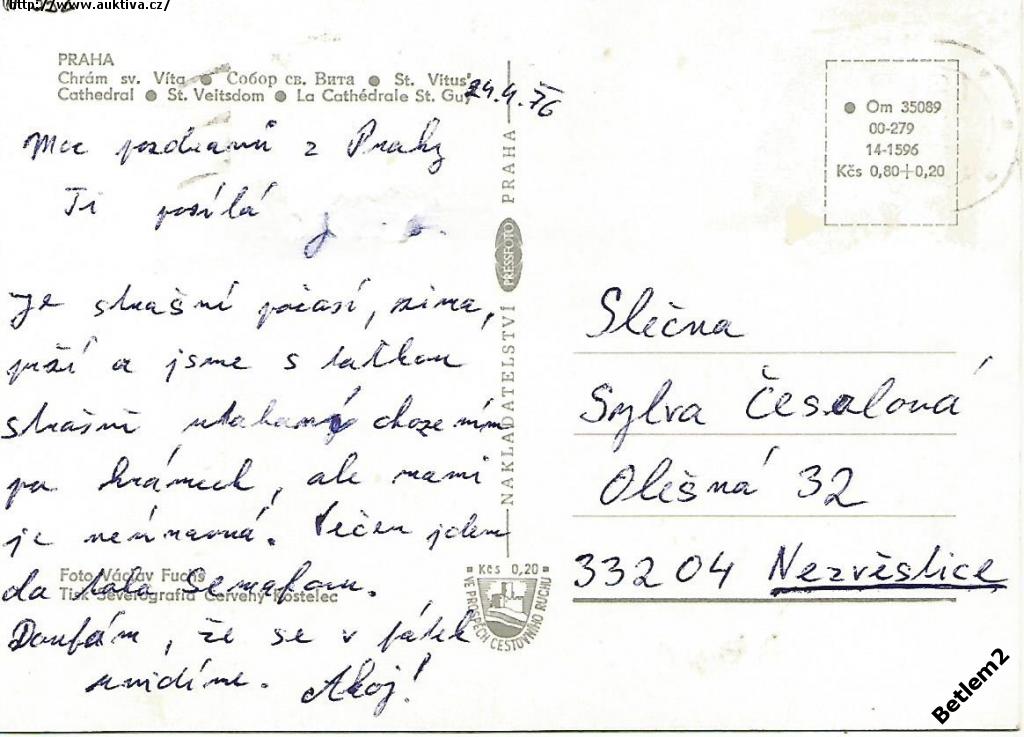 http://www.auktiva.cz/
PRAHA
Chrám sv. Víta ● Собор св. Вита ● St. Vitus'
Cathedral ● St. Veitsdom ● La Cathédrale St. Guy
24.4.76
Moc pozdravů z Prahy
Ti posílá
Je strašné počasí, zima,
prší a jsme s taťkou
strašně utahaný chozením
po krámech, ale mami
je neúnavná. Večer jdem
do toho Semaforu.
Doufám, že se v pátek
uvidíme. Ahoj!
Foto Václav Fuchs
Tisk Severografia Červený Kostelec
NAKLADATELSTVÍ PRESSFOTO PRAHA
Kčs 0,20
VE PROSPĚCH CESTOVNÍHO RUCHU
● Om 35089
00-279
14-1596
Kčs 0,80+0,20
Slečna
Sylva Česalová
Olešná 32
332 04 Nezvěstice
Betlem2